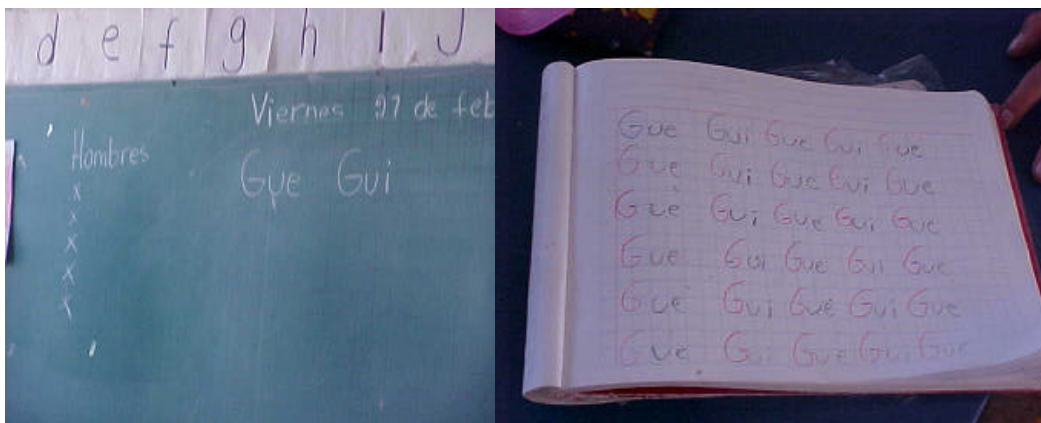 d e f g h i J
Viernes 27 de feb
Hombres
Gue Gui
x
x
x
x
x
Gue Gui Gue Gui Gue
Gue Gui Gue Gui Gue
Gue Gui Gue Gui Gue
Gue Gui Gue Gui Gue
Gue Gui Gue Gui Gue
Gue Gui Gue Gui Gue